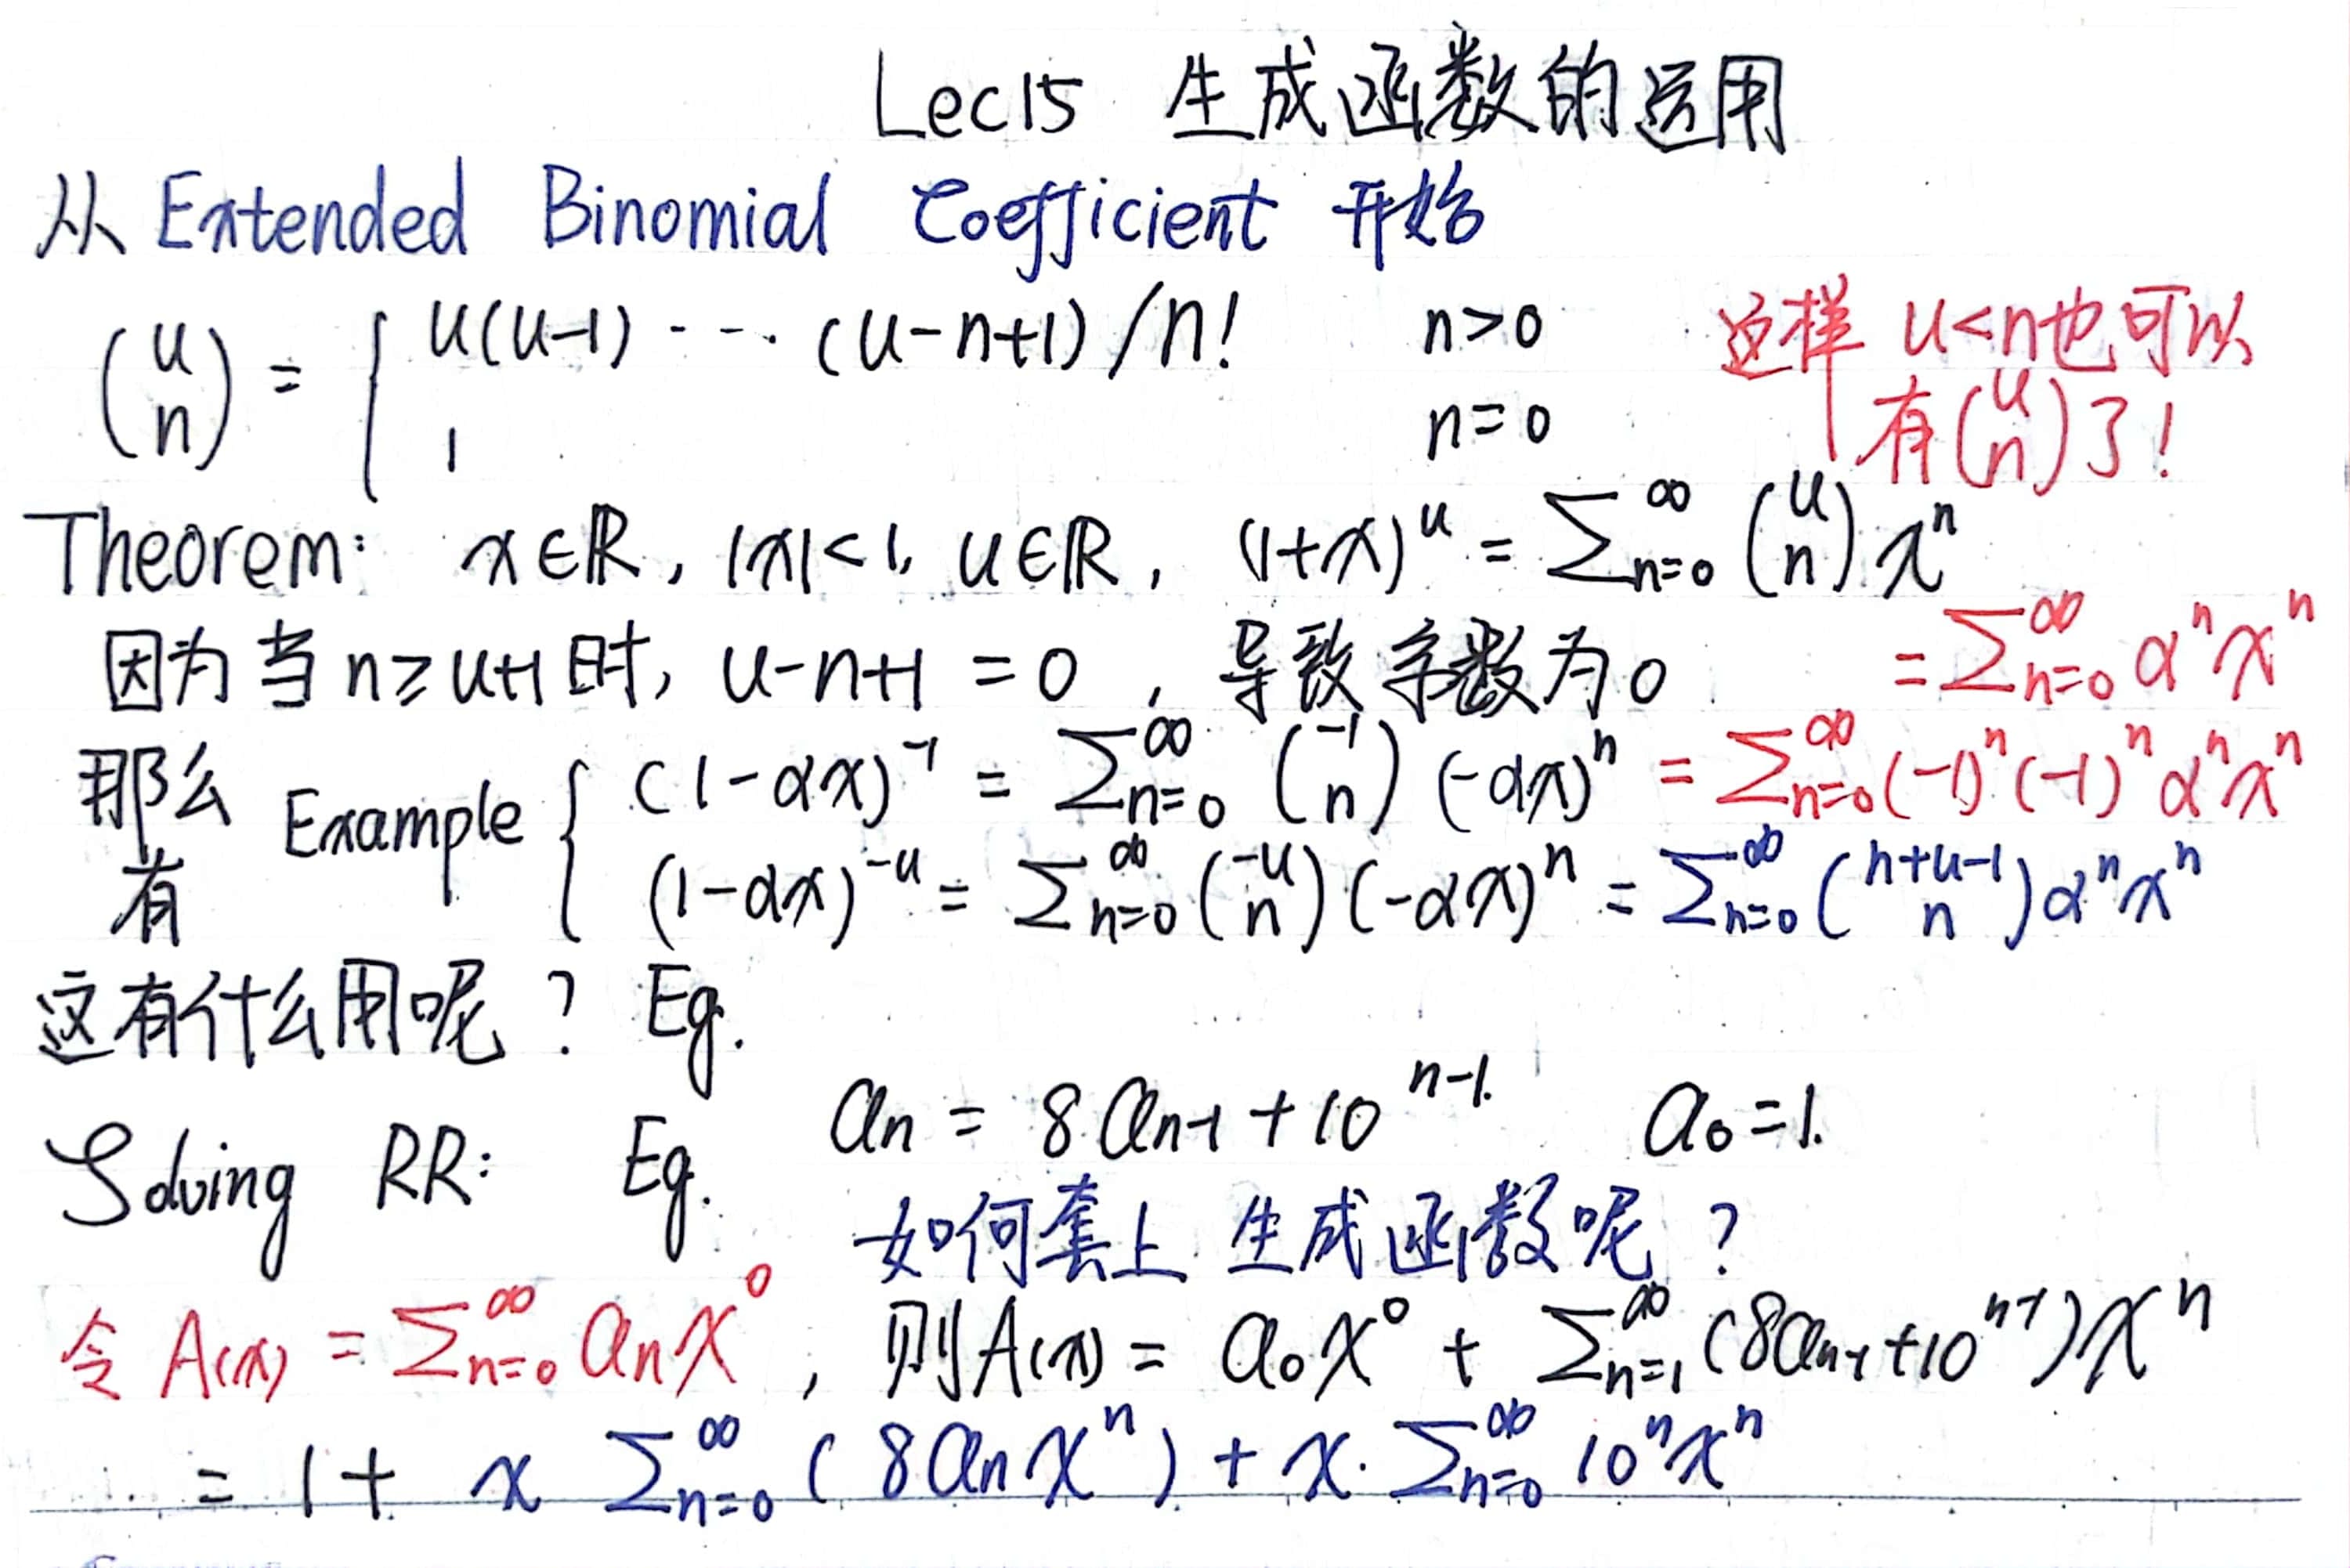 Lec15 生成函数的运用
从 Extended Binomial Coefficient 开始
(u n) = { u(u-1) ··· (u-n+1) / n!  n>0
1  n=0
这样 u<n也可以
有(u n)了!
Theorem: x∈ℝ, |x|<1, u∈ℝ, (1+x)^u = ∑_{n=0}^∞ (u n) x^n
因为当 n≥u+1时, u-n+1 = 0, 导致系数为0
= ∑_{n=0}^∞ α^n x^n
那么有 Example { (1-αx)^{-1} = ∑_{n=0}^∞ (-1 n) (-αx)^n = ∑_{n=0}^∞ (-1)^n (-1)^n α^n x^n
(1-αx)^{-u} = ∑_{n=0}^∞ (-u n) (-αx)^n = ∑_{n=0}^∞ (n+u-1 n) α^n x^n
这有什么用呢? Eg.
Solving RR: Eg. a_n = 8a_{n-1} + 10^{n-1}. a_0 = 1.
如何套上生成函数呢?
令 A(x) = ∑_{n=0}^∞ a_n x^0, 则A(x) = a_0 x^0 + ∑_{n=1}^∞ (8a_{n-1} + 10^{n-1}) x^n
= 1 + x ∑_{n=0}^∞ (8a_n x^n) + x· ∑_{n=0}^∞ 10^n x^n